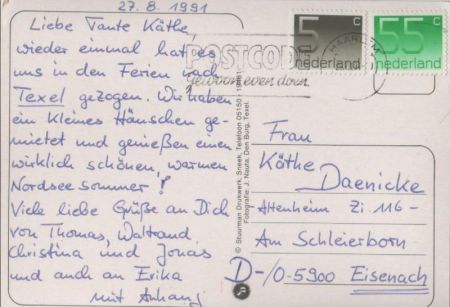 27.8.1991
Liebe Tante Käthe,
wieder einmal hat es
uns in den Ferien nach
Texel gezogen. Wir haben
ein kleines Häuschen ge-
mietet und genießen einen
wirklich schönen, warmen
Nordseesommer!
Viele liebe Grüße an Dich
von Thomas, Waltraud,
Christina und Jonas
und auch an Erika
mit Anhang
POSTCODE
gewoon even doen
HAARLEM
5 c
nederland
55 c
nederland
© Stuurman Drukwerk, Sneek, Telefoon 05150 -
Fotografie: J. Nauta, Den Burg, Texel.
Frau
Käthe
Daenicke
Altenheim Zi. 116-
Am Schleierborn
D-/O-5900 Eisenach